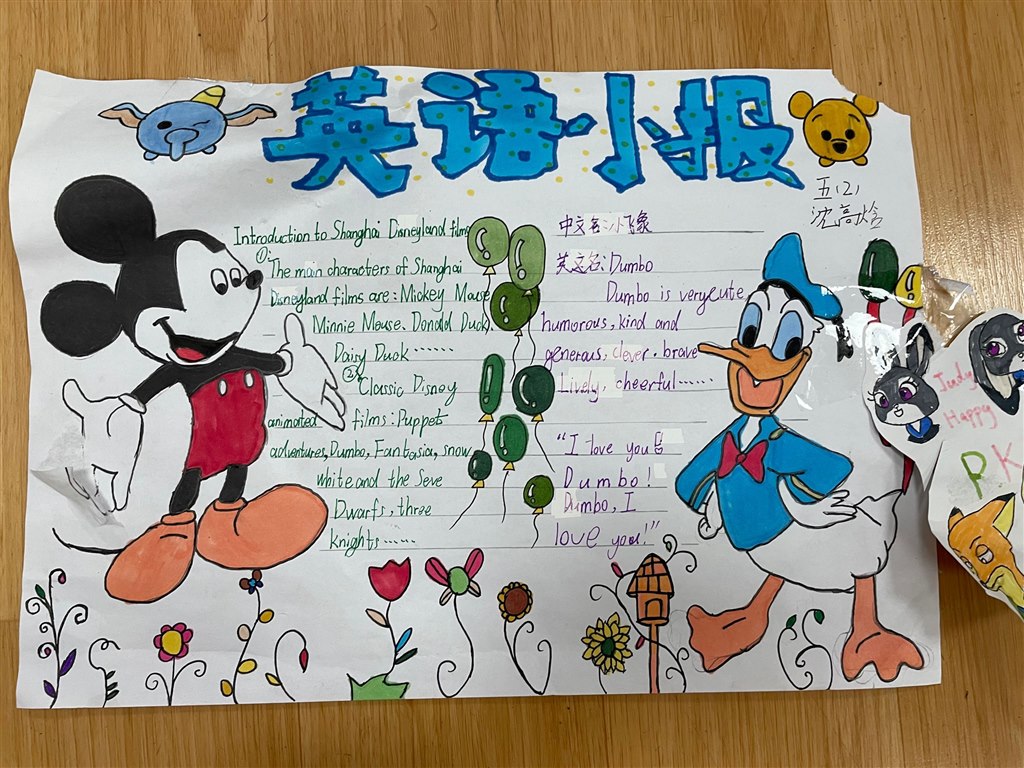 英语小报
五(2)
沈高焓
Introduction to Shanghai Disneyland films
① The main characters of Shanghai
Disneyland films are: Mickey Mouse
Minnie Mouse、Donald Duck、
Daisy Duck ······
② Classic Disney
animated films: Puppet
adventures, Dumbo, Fantasia, snow
white and the Seve
Dwarfs, three
knights ······
中文名:小飞象
英文名: Dumbo
Dumbo is very cute,
humorous, kind and
generous, clever, brave
Lively, cheerful ······
"I love you
Dumbo!
Dumbo, I
love you!"
Judy
Happy
PK